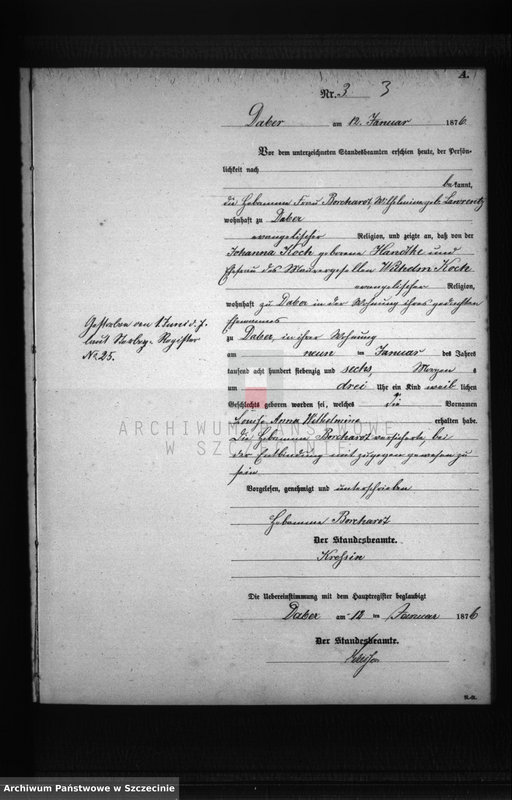 A.
Nr. 3 3
Daber am 12. Januar 1876.
Vor dem unterzeichneten Standesbeamten erschien heute, der Persön-
lichkeit nach
bekannt,
die Hebamme Frau Borchardt, Wilhelmine geb. Lawrentz
wohnhaft zu Daber
evangelischer Religion, und zeigte an, daß von der
Johanna Koch geborene Handtke und
Ehefrau des Maurergesellen Wilhelm Koch
evangelischer Religion,
wohnhaft zu Daber in der Wohnung ihres gedachten
Ehemannes
zu Daber, in ihrer Wohnung
am neun ten Januar des Jahres
tausend acht hundert siebenzig und sechs, Morgens
um drei Uhr ein Kind weib lichen
Geschlechts geboren worden sei, welches die Vornamen
Louise Anna Wilhelmine erhalten habe.
Die Hebamme Borchardt versicherte, bei
der Entbindung mit zugegen gewesen zu
sein.
Vorgelesen, genehmigt und unterschrieben
Hebamme Borchardt
Der Standesbeamte.
Die Uebereinstimmung mit dem Hauptregister beglaubigt
Daber am 12 ten Januar 1876
Der Standesbeamte.
Gestorben den 1 Juni d. J.
laut Sterbe-Register
No. 25.
ARCHIWUM PAŃSTWOWE
W SZCZECINIE
Archiwum Państwowe w Szczecinie